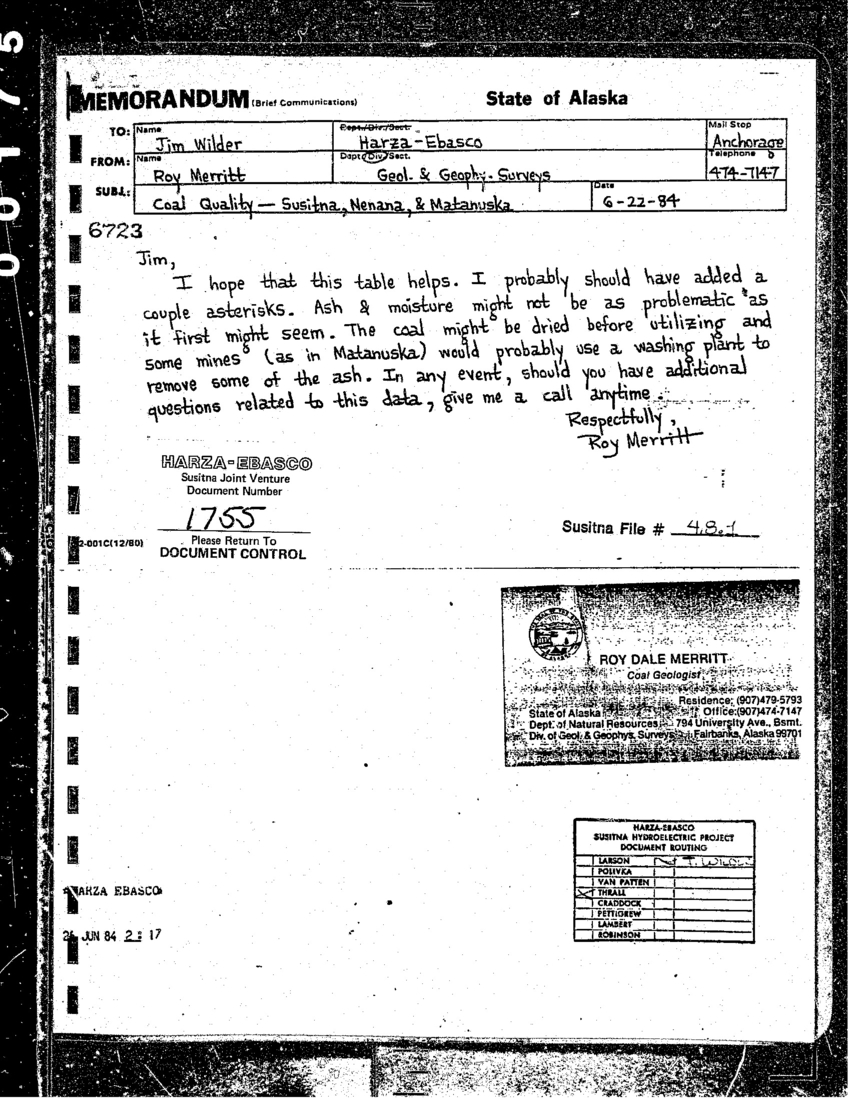 00175
MEMORANDUM (Brief Communications) State of Alaska
TO: Name Jim Wilder Dept./Div./Sect. Harza-Ebasco Mail Stop Anchorage
FROM: Name Roy Merritt Dept./Div./Sect. Geol. & Geophy. Surveys Telephone 474-7147
SUBJ.: Coal Quality — Susitna, Nenana, & Matanuska Date 6-22-84
6723
Jim,
I hope that this table helps. I probably should have added a
couple asterisks. Ash & moisture might not be as problematic as
it first might seem. The coal might be dried before utilizing and
some mines (as in Matanuska) would probably use a washing plant to
remove some of the ash. In any event, should you have additional
questions related to this data, give me a call anytime.
Respectfully,
Roy Merritt
HARZA-EBASCO
Susitna Joint Venture
Document Number
1755
Please Return To
DOCUMENT CONTROL
Susitna File # 4.8.1
2-001C(12/80)
ROY DALE MERRITT
Coal Geologist
Residence: (907)479-5793
State of Alaska Office: (907)474-7147
Dept. of Natural Resources 794 University Ave., Bsmt.
Div. of Geol. & Geophys. Surveys Fairbanks, Alaska 99701
HARZA-EBASCO
SUSITNA HYDROELECTRIC PROJECT
DOCUMENT ROUTING
LARSON
POLIVKA
VAN PATTEN
THRALL
CRADDOCK
PETTIGREW
LAMBERT
ROBINSON
HARZA EBASCO
JUN 84 2:17